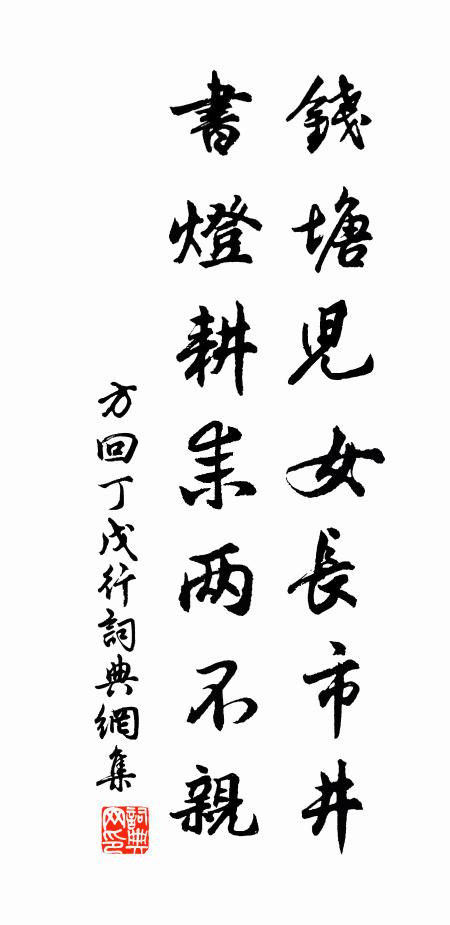 錢塘兒女長市井
書燈耕耒兩不親
方回丁戊行詞典網集
詞典網印